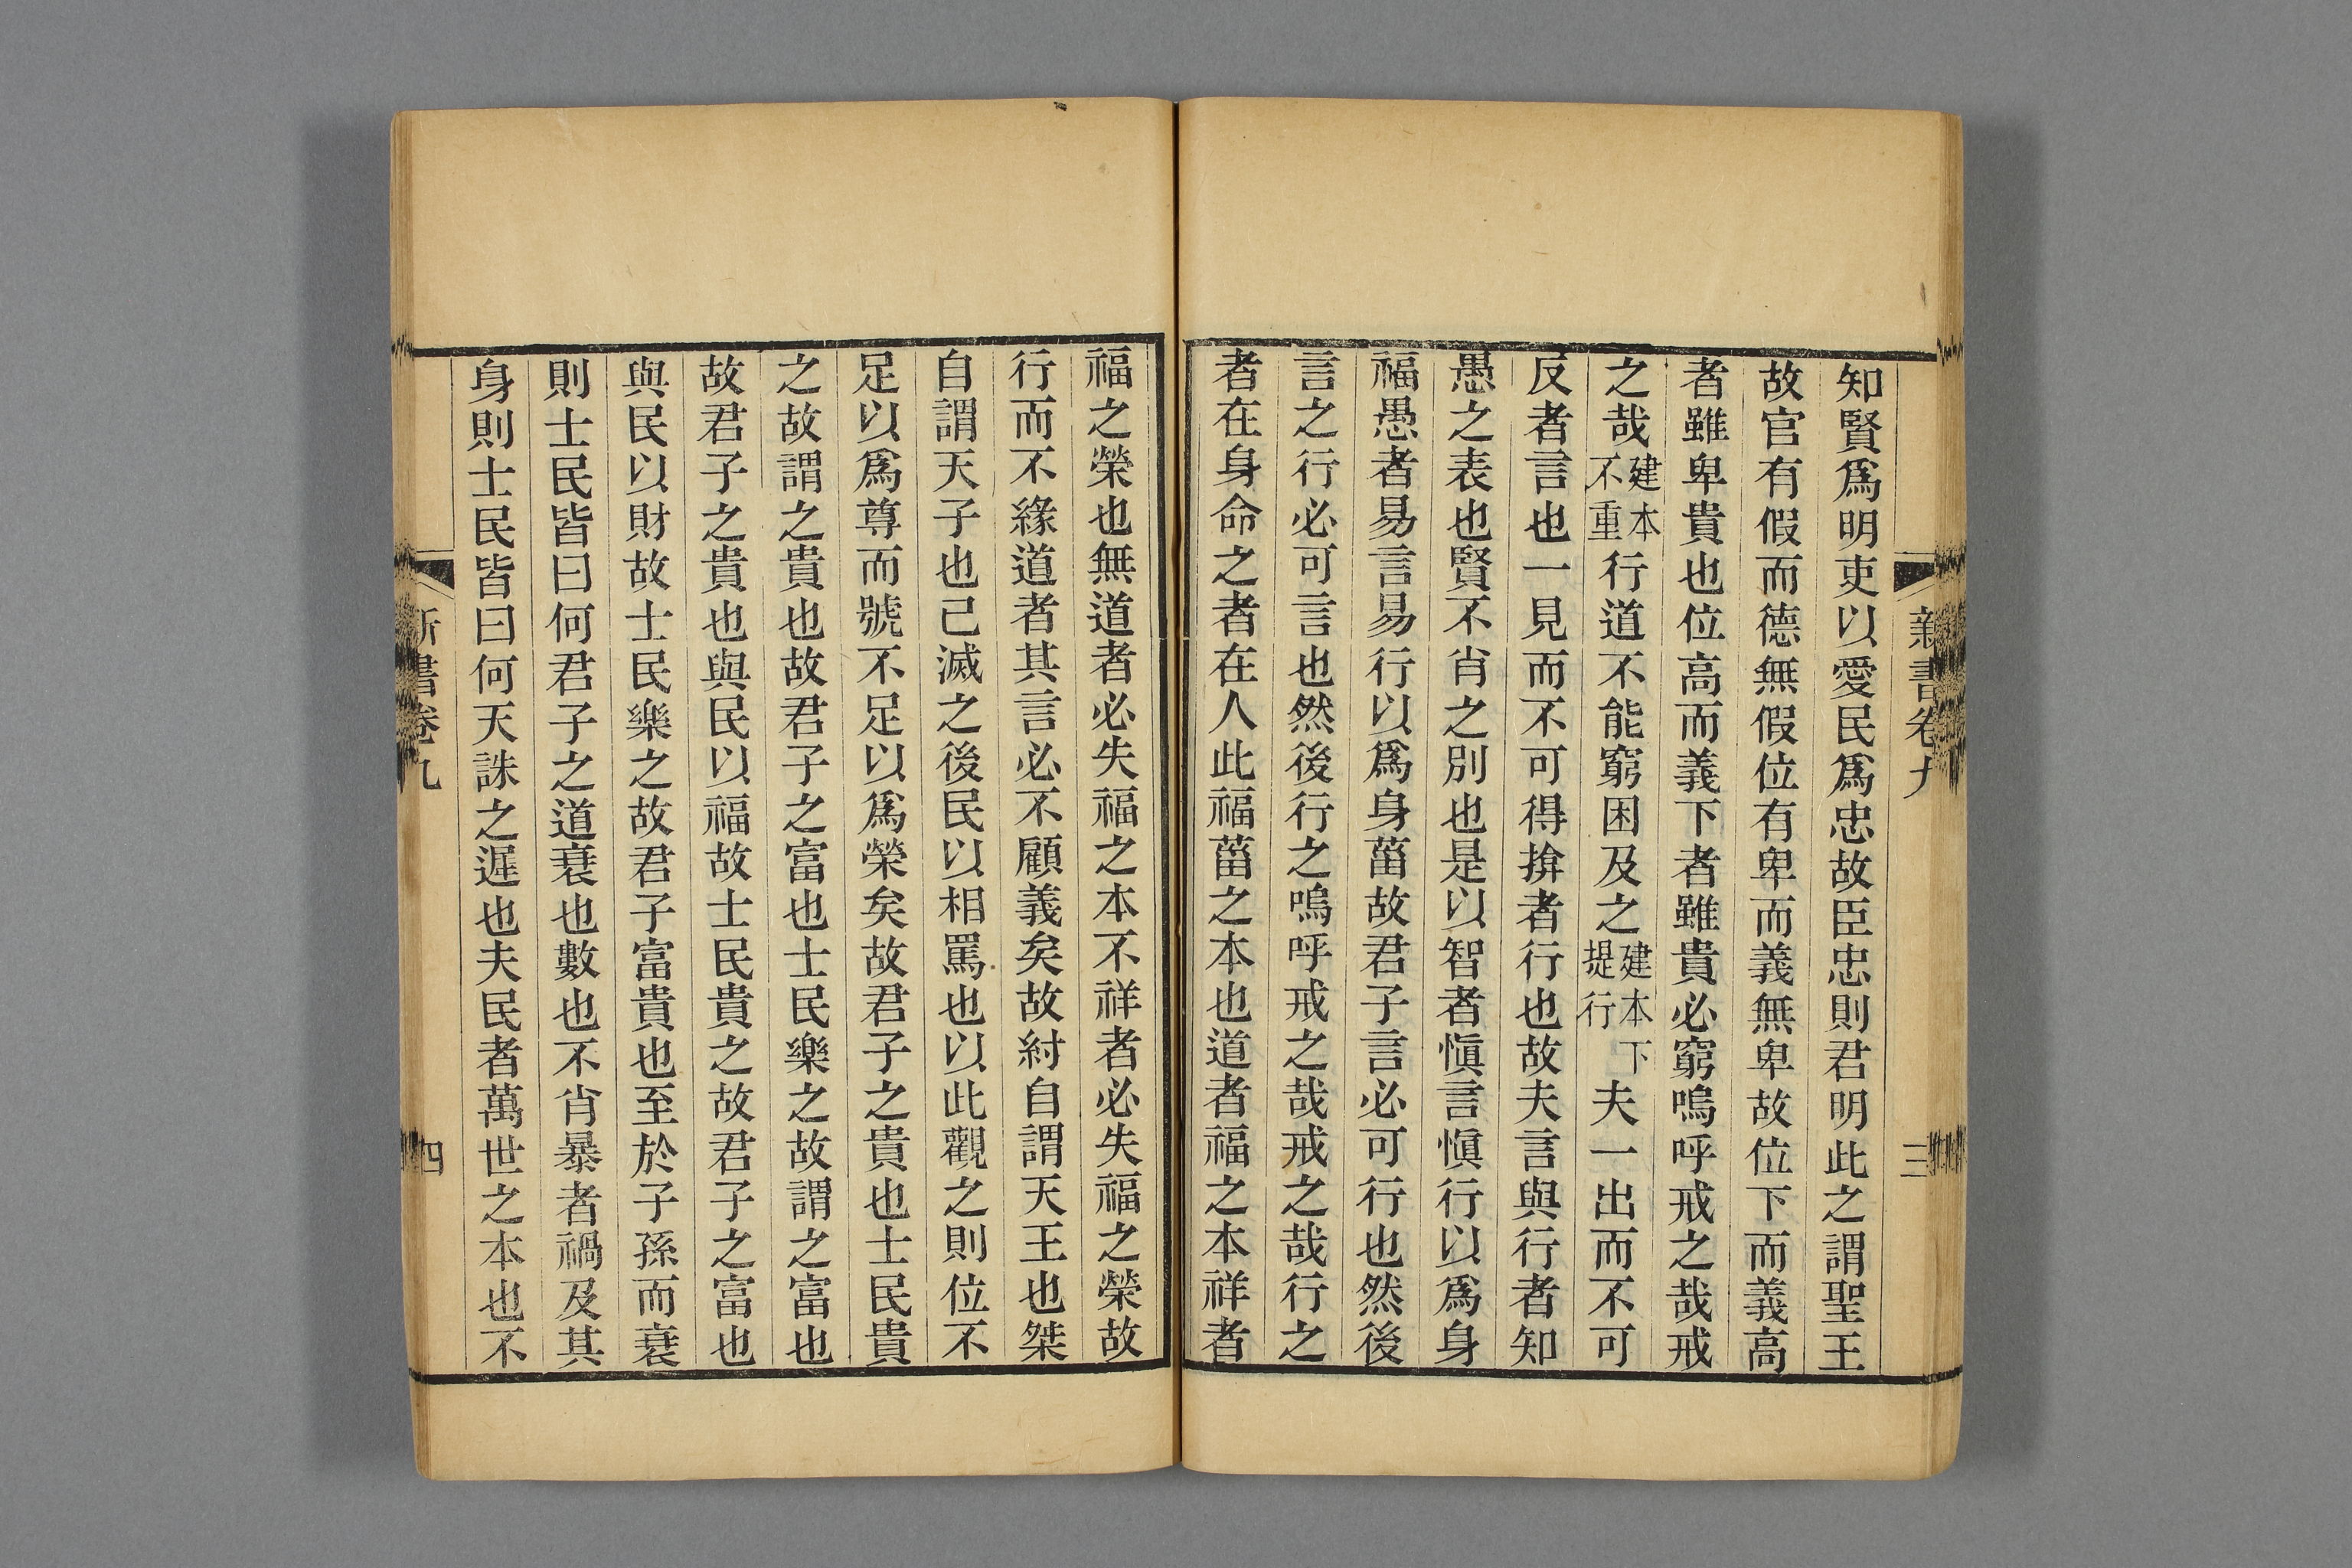 新書卷九
三
知賢爲明吏以愛民爲忠故臣忠則君明此之謂聖王
故官有假而德無假位有卑而義無卑故位下而義高
者雖卑貴也位高而義下者雖貴必窮嗚呼戒之哉戒
之哉建本不重行道不能窮困及之建本下提行夫一出而不可
反者言也一見而不可得揜者行也故夫言與行者知
愚之表也賢不肖之別也是以智者愼言愼行以爲身
福愚者易言易行以爲身菑故君子言必可行也然後
言之行必可言也然後行之嗚呼戒之哉戒之哉行之
者在身命之者在人此福菑之本也道者福之本祥者
福之榮也無道者必失福之本不祥者必失福之榮故
行而不緣道者其言必不顧義矣故紂自謂天王也桀
自謂天子也已滅之後民以相罵也以此觀之則位不
足以爲尊而號不足以爲榮矣故君子之貴也士民貴
之故謂之貴也故君子之富也士民樂之故謂之富也
故君子之貴也與民以福故士民貴之故君子之富也
與民以財故士民樂之故君子富貴也至於子孫而衰
則士民皆曰何君子之道衰也數也不肖暴者禍及其
身則士民皆曰何天誅之遲也夫民者萬世之本也不
新書卷九
四